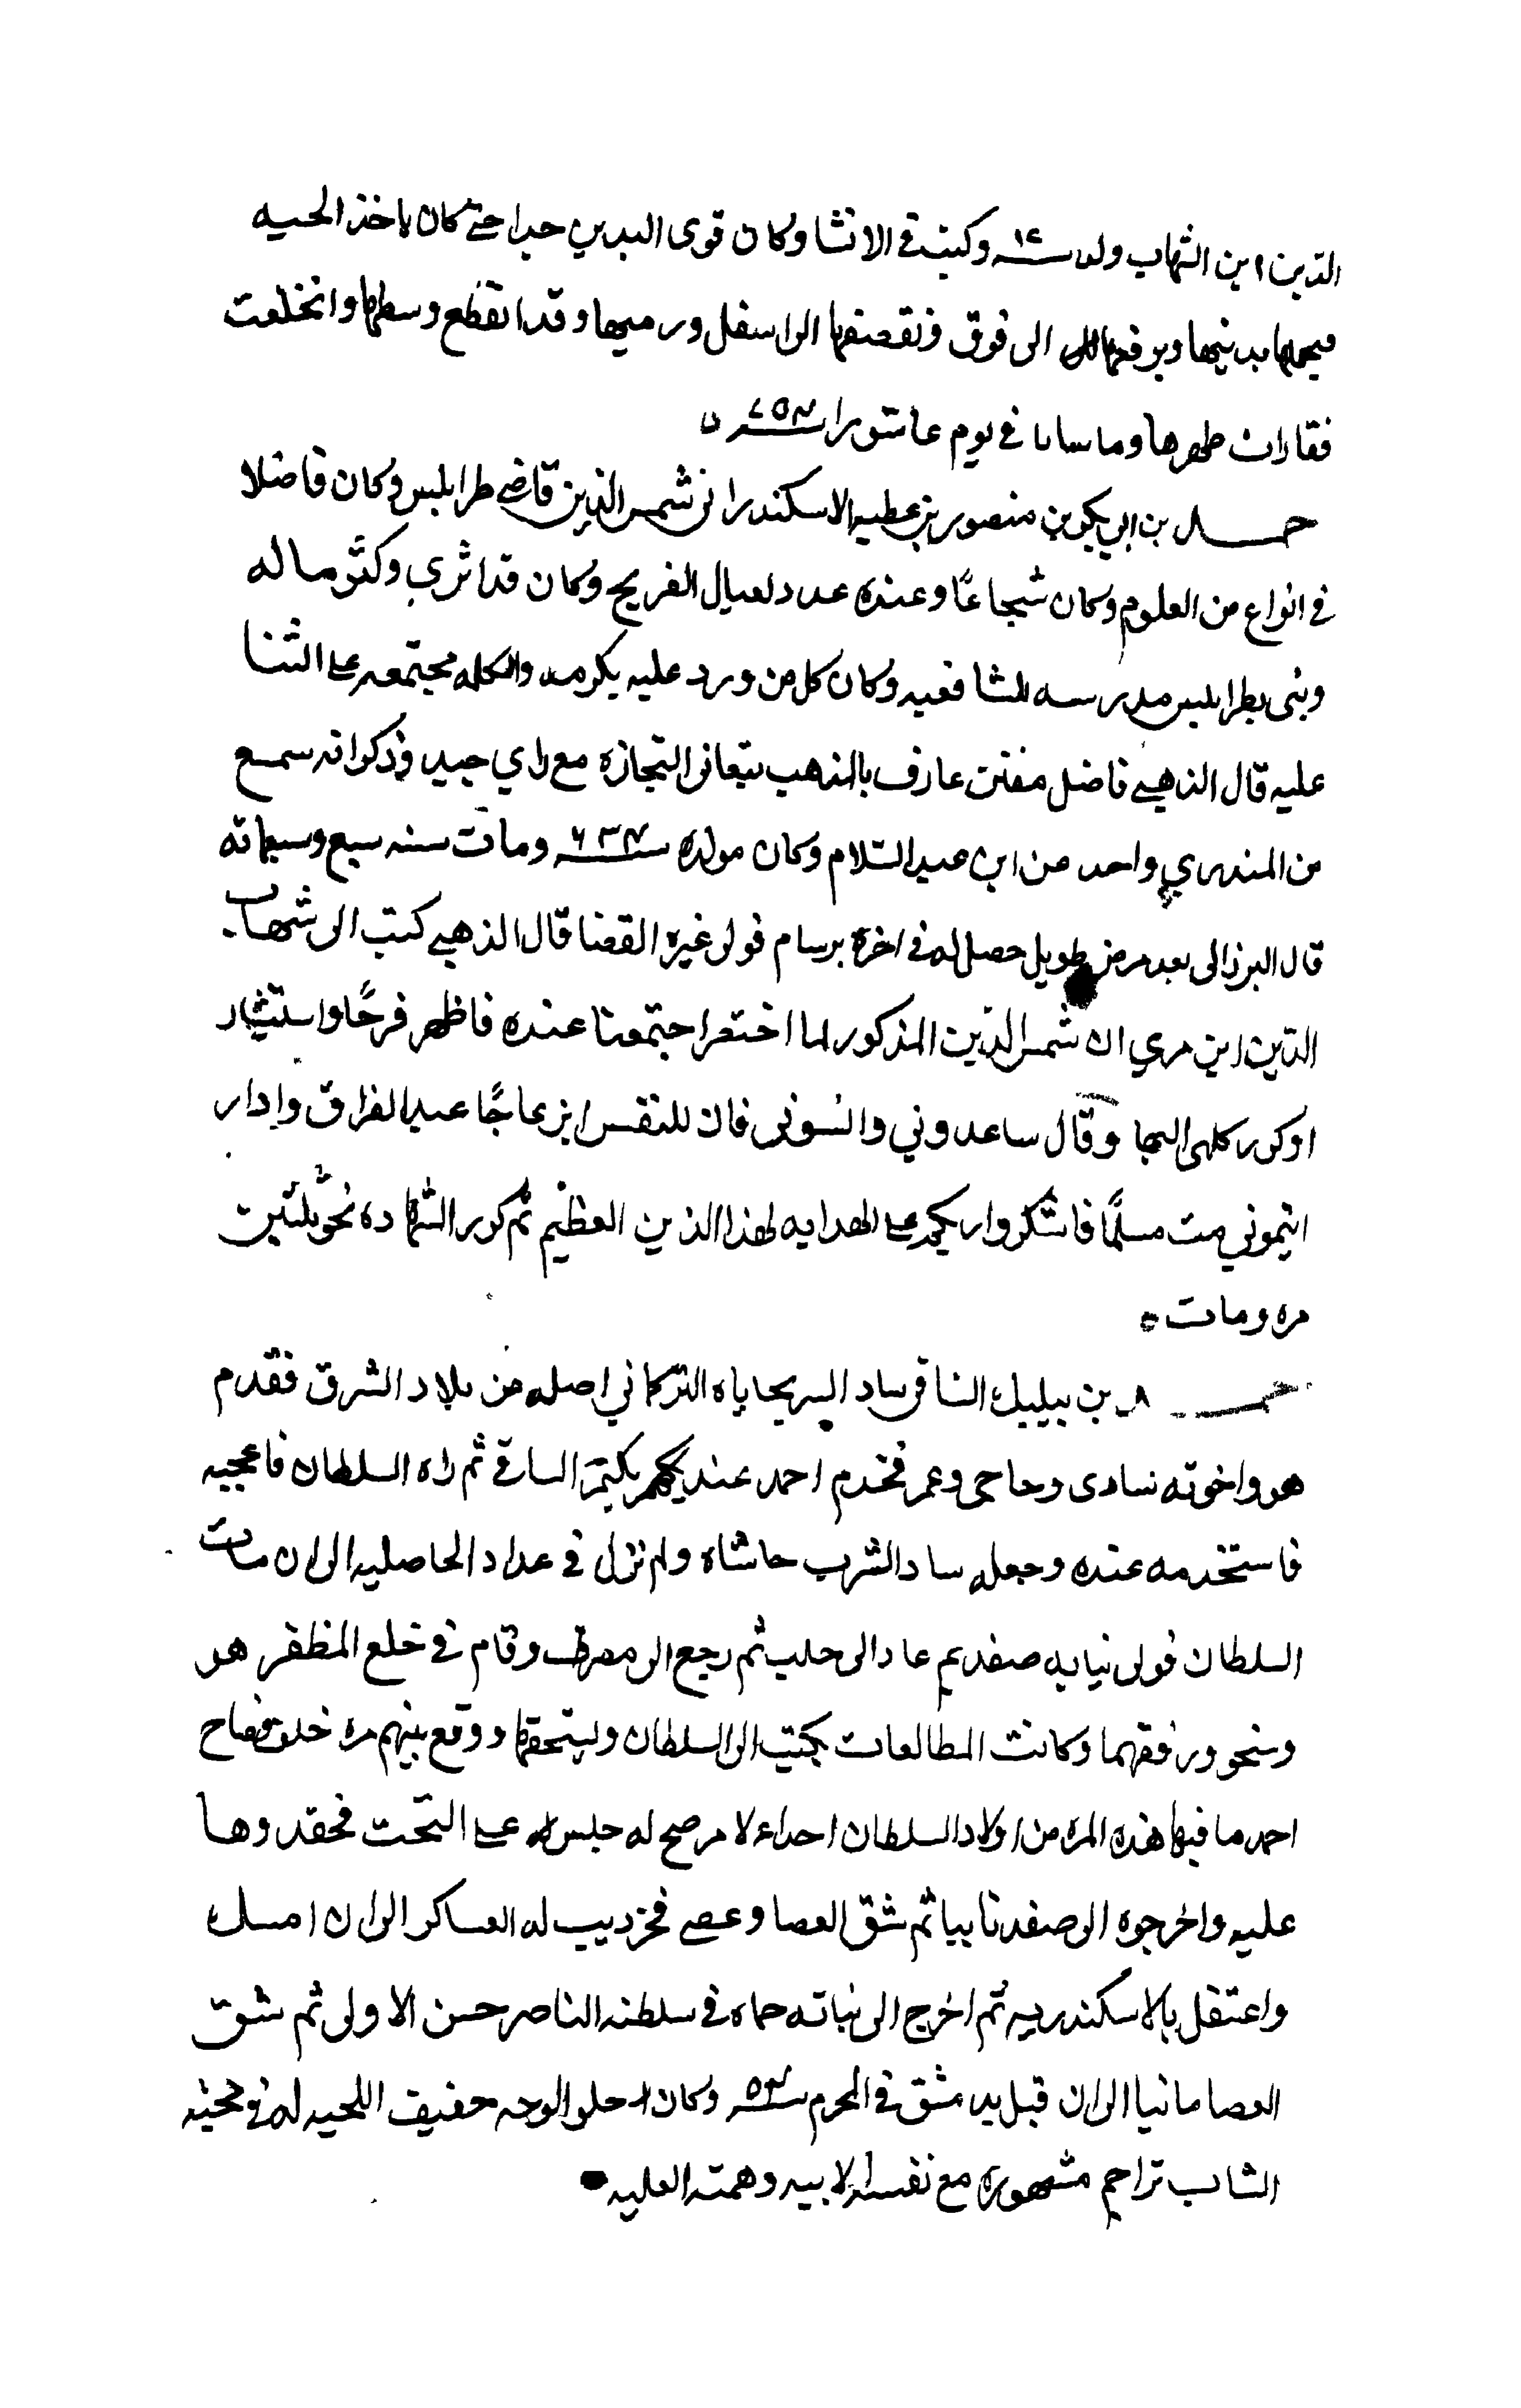 الدين ابن الشهاب ولد سنة ١٤ وكتب في الانشا وكان قوى البدين جدا حتى كان ياخذ الحيه
فيمسكها بذنبها ويرفعها الى فوق ونقصفها الى اسفل ورميها وقد انقطع وسطها وانخلعت
فقارات ظهرها ومات شابا في يوم عاشورا سنة ٧٥٣
احمد بن ابي بكر بن منصور بن عطيه الاسكندراني شمس الدين قاضي طرابلس وكان فاضلا
في انواع من العلوم وكان شجاعًا وعنده عدد لقتال الفرنج وكان قد اثرى وكثر ماله
وبنى بطرابلس مدرسه للشافعيه وكان كل من ورد عليه يكرمه والكلمه مجتمعه على الثنا
عليه قال الذهبي فاضل مفنن عارف بالمذهب يتعانى التجاره مع راي جيد وذكر انه سمع
من المنذري واحد من ابن عبد السلام وكان مولده سنة ٦٣٣ ومات سنه سبع وسبعمائه
قال البرزالى بعد مرض طويل حصل له في اخره برسام فولى غيره القضا قال الذهبي كتب الى شهاب
الدين ابن مري ان شمس الدين المذكور لما احتضر اجتمعنا عنده فاظهر فرحًا واستبشار
او كرر كلمه وقال ساعدوني وانسوني فان للنفس انزعاجًا عند الفراق واذا ر
ايتموني مت مسلمًا فاشكروا ربكم على الهدايه لهذا الدين العظيم ثم كرر الشهاده نحو ثلثين
مره ومات
احمد بن بيليك الساقي شاد الشربخاناه التركماني اصله من بلاد الشرق فقدم
هو واخوته شادى وحاجى وعمر فخدم احمد عند بكتمر الساقي ثم راه السلطان فاعجبه
فاستخدمه عنده وجعله شاد الشرب خاناه ولم نزل في عداد الخاصكيه الى ان مات
السلطان فولى نيابه صفد ثم عاد الى حلب ثم رجع الى مصر وقام في خلع المظفر هو
ونحو ورفقتهما وكانت المطالعات تكتب الى السلطان وليتحققها ووقع بينهم مره خلف فصاح
احمد ما فيها هذه المره من اولاد السلطان احدا الا من صح له جلس على التخت فحقدوها
عليه واخرجوه الى صفد نايبا ثم شق العصا وعصى فجردت له العساكر الى ان امسك
واعتقل بالاسكندريه ثم اخرج الى نيابه حماه في سلطنه الناصر حسن الاولى ثم شق
العصا ثانيا الى ان قتل بدمشق في المحرم سنة ٥٣ وكان احلو الوجه خفيف اللحيه له في محبته
الشاب تراجم مشهوره مع نفسه الابيه وهمته العليه